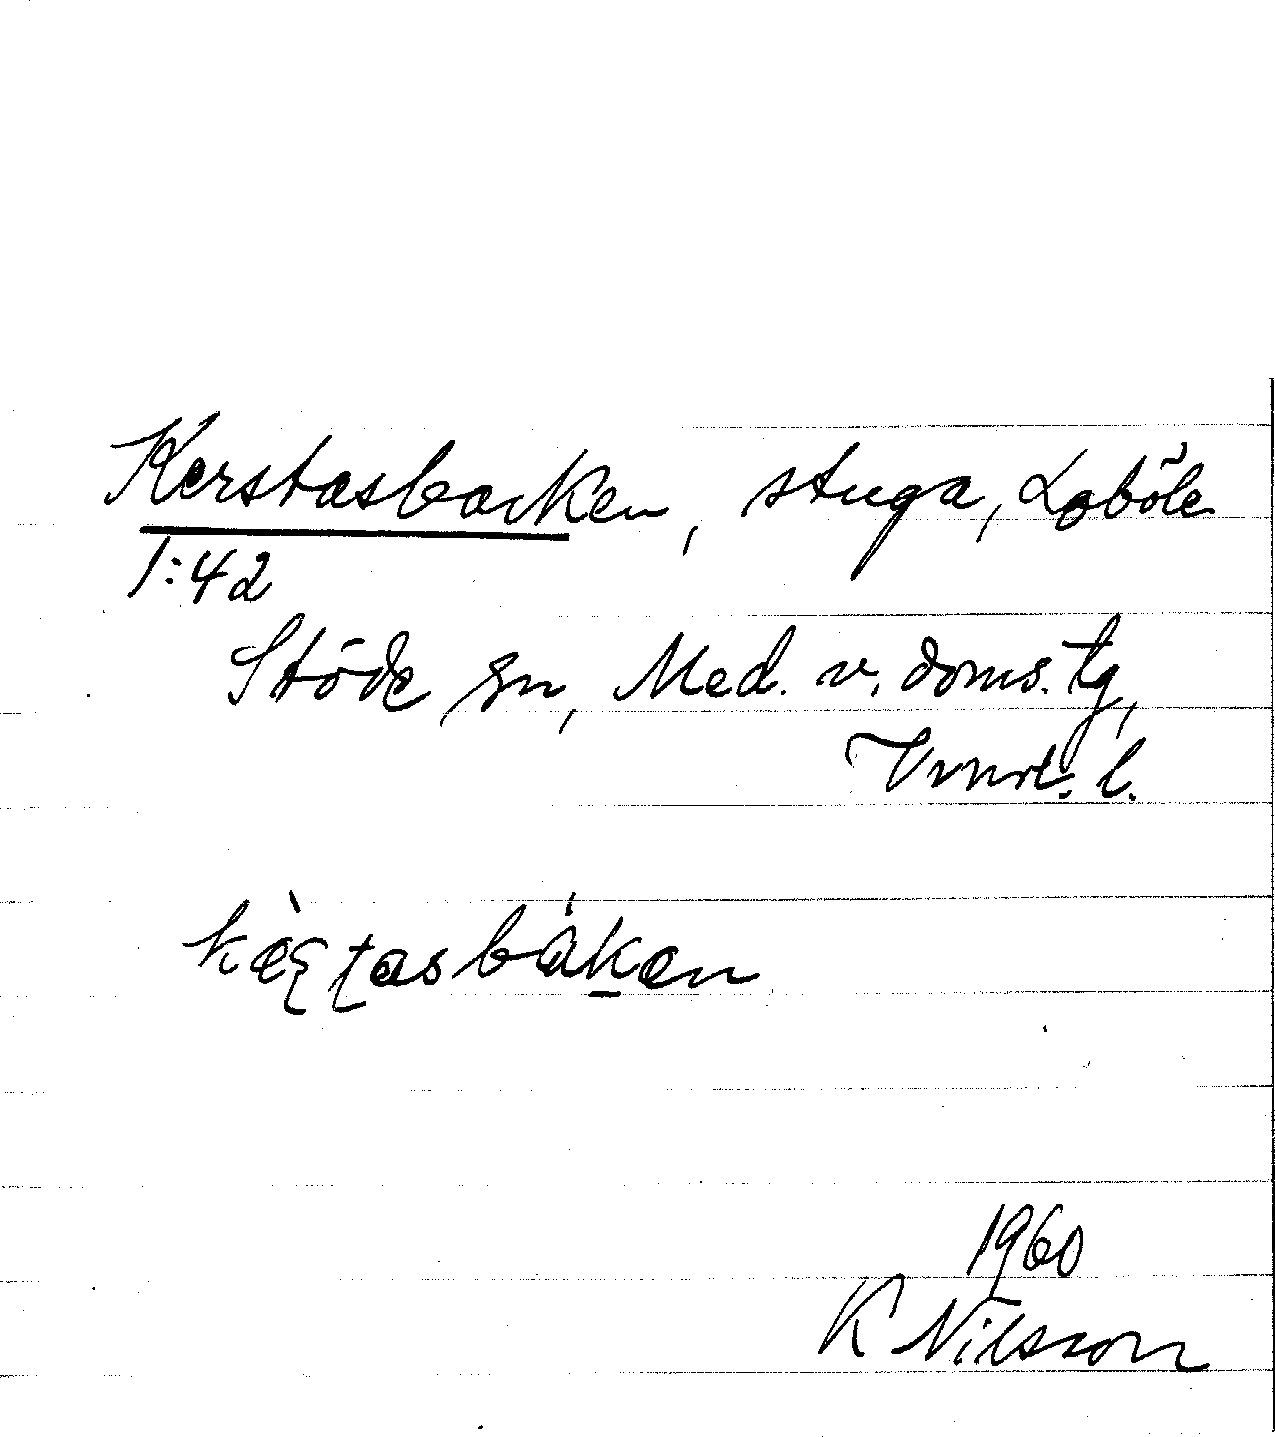 Kerstasbacken, stuga, Loböle
1:42
Stöde sn, Med. v. doms. tg,
Vnrl. l.
kæ̀ʂʈasbákan
1960
K Nilsson